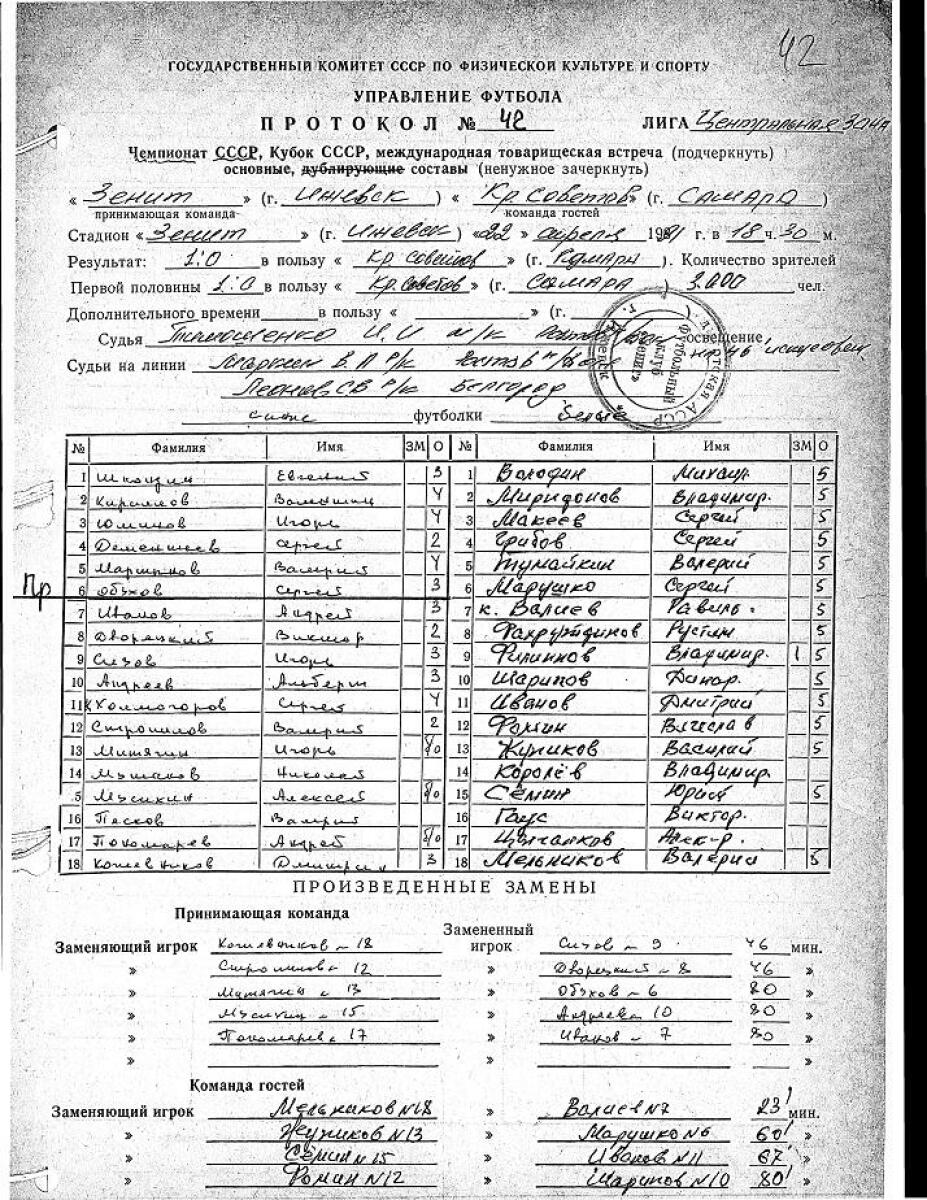 42
ГОСУДАРСТВЕННЫЙ КОМИТЕТ СССР ПО ФИЗИЧЕСКОЙ КУЛЬТУРЕ И СПОРТУ
УПРАВЛЕНИЕ ФУТБОЛА
ПРОТОКОЛ № 42 ЛИГА Центральная зона
Чемпионат СССР, Кубок СССР, международная товарищеская встреча (подчеркнуть)
основные, дублирующие составы (ненужное зачеркнуть)
« Зенит » (г. Ижевск ) « Кр. Советов » (г. Самара )
принимающая команда команда гостей
Стадион « Зенит » (г. Ижевск ) «22» апреля 1991 г. в 18 ч. 30 м.
Результат: 1:0 в пользу « Кр. Советов » (г. Самара ). Количество зрителей
Первой половины 1:0 в пользу « Кр. Советов » (г. Самара ) 3.000 чел.
Дополнительного времени в пользу « » (г. )
Судья Тимошенко И.И. освещение
Судьи на линии В.П. р/к Ростов н/
Леонов СВ р/к Белгород
синие футболки белые
№ Фамилия Имя ЗМ О № Фамилия Имя ЗМ О
1 Школин Евгений 3 1 Володин Михаил 5
2 Кириллов Валентин 4 2 Миридонов Владимир. 5
3 Юминов Игорь 4 3 Макеев Сергей 5
4 Дементьев Сергей 2 4 Грибов Сергей 5
5 Мартынов Валерий 4 5 Тумайкин Валерий 5
Пр 6 Обухов Сергей 3 6 Марушко Сергей 5
7 Иванов Андрей 3 7 к. Валиев Равиль 5
8 Дворецкий Виктор 2 8 Фахрутдинов Рустям 5
9 Сизов Игорь 3 9 Филиппов Владимир. 1 5
10 Андреев Альберт 3 10 Шарипов Динар. 5
11 к Холмогоров Сергей 4 11 Иванов Дмитрий 5
12 Стропилов Валерий 2 12 Фомин Вячеслав 5
13 Митягин Игорь б/о 13 Жуников Василий 5
14 Николай 14 Королёв Владимир.
5 Мусихин Алексей б/о 15 Сёмин Юрий 5
16 Песков Валерий 16 Гаус Виктор.
17 Пономарев Андрей б/о 17 Цыганков Алек-р.
18 Кожевников Дмитрий 3 18 Мельников Валерий 5
ПРОИЗВЕДЕННЫЕ ЗАМЕНЫ
Принимающая команда Замененный
Заменяющий игрок Кожевников 18 игрок Сизов 9 46 мин.
» Стропилов 12 » Дворецкий 8 46 »
» Митягин 13 » Обухов 6 80 »
» Мусихин 15 » Андреев 10 80 »
» Пономарев 17 » Иванов 7 80 »
» » »
Команда гостей
Заменяющий игрок Мельников N18 » Валиев N7 23' мин.
» Жуников N13 » Марушко N6 60' »
» Сёмин N15 » Иванов N11 67' »
» Фомин N12 » Шарипов N10 80' »